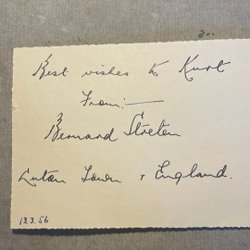 2.
Best wishes to Kurt
From:—
Bernard Streten
Luton Town & England.
13.3.56